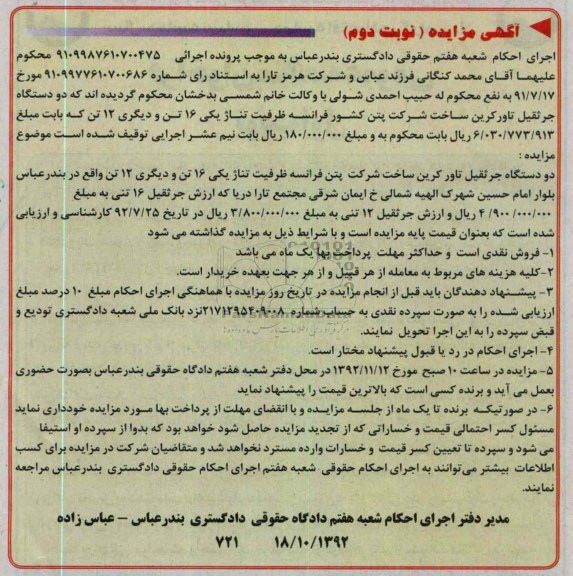 آگهی مزایده ( نوبت دوم )
اجرای احکام شعبه هفتم حقوقی دادگستری بندرعباس به موجب پرونده اجرائی ۹۱۰۹۹۸۷۶۱۰۷۰۰۴۷۵ محکوم
علیهما آقای محمد کنگانی فرزند عباس و شرکت هرمز تارا به استناد رای شماره ۹۱۰۹۹۷۷۶۱۰۷۰۰۶۸۶ مورخ
۹۱/۷/۱۷ به نفع محکوم له حبیب احمدی شولی با وکالت خانم شمسی بدخشان محکوم گردیده اند که دو دستگاه
جرثقیل تاورکرین ساخت شرکت پتن کشور فرانسه ظرفیت تناژ یکی ۱۶ تن و دیگری ۱۲ تن که بابت مبلغ
۶/۰۳۰/۷۷۳/۹۱۳ ریال بابت محکوم به و مبلغ ۱۸۰/۰۰۰/۰۰۰ ریال بابت نیم عشر اجرایی توقیف شده است موضوع
مزایده :
دو دستگاه جرثقیل تاور کرین ساخت شرکت پتن فرانسه ظرفیت تناژ یکی ۱۶ تن و دیگری ۱۲ تن واقع در بندرعباس
بلوار امام حسین شهرک الهیه شمالی خ ایمان شرقی مجتمع تارا دریا که ارزش جرثقیل ۱۶ تنی به مبلغ
۴/۹۰۰/۰۰۰/۰۰۰ ریال و ارزش جرثقیل ۱۲ تنی به مبلغ ۳/۸۰۰/۰۰۰/۰۰۰ ریال در تاریخ ۹۲/۷/۲۵ کارشناسی و ارزیابی
شده است که بعنوان قیمت پایه مزایده است و با شرایط ذیل به مزایده گذاشته می شود
۱- فروش نقدی است و حداکثر مهلت پرداخت بها یک ماه می باشد
۲-کلیه هزینه های مربوط به معامله از هر قبیل و از هر جهت بعهده خریدار است.
۳- پیشنهاد دهندگان باید قبل از انجام مزایده در تاریخ روز مزایده با هماهنگی اجرای احکام مبلغ ۱۰ درصد مبلغ
ارزیابی شده را به صورت سپرده نقدی به حساب شماره ۲۱۷۱۲۹۵۴۰۹۰۰۸ نزد بانک ملی شعبه دادگستری تودیع و
قبض سپرده را به این اجرا تحویل نمایند.
۴- اجرای احکام در رد یا قبول پیشنهاد مختار است.
۵- مزایده در ساعت ۱۰ صبح مورخ ۱۳۹۲/۱۱/۱۲ در محل دفتر شعبه هفتم دادگاه حقوقی بندرعباس بصورت حضوری
بعمل می آید و برنده کسی است که بالاترین قیمت را پیشنهاد نماید
۶- در صورتیکه برنده تا یک ماه از جلسه مزایده و با انقضای مهلت از پرداخت بها مورد مزایده خودداری نماید
مسئول کسر احتمالی قیمت و خساراتی که از تجدید مزایده حاصل شود خواهد بود که بدوا از سپرده او استیفا
می شود و سپرده تا تعیین کسر قیمت و خسارات وارده مسترد نخواهد شد و متقاضیان شرکت در مزایده برای کسب
اطلاعات بیشتر می توانند به اجرای احکام حقوقی شعبه هفتم اجرای احکام حقوقی دادگستری بندرعباس مراجعه
نمایند.
مدیر دفتر اجرای احکام شعبه هفتم دادگاه حقوقی دادگستری بندرعباس - عباس زاده
۱۸/۱۰/۱۳۹۲ ۷۲۱